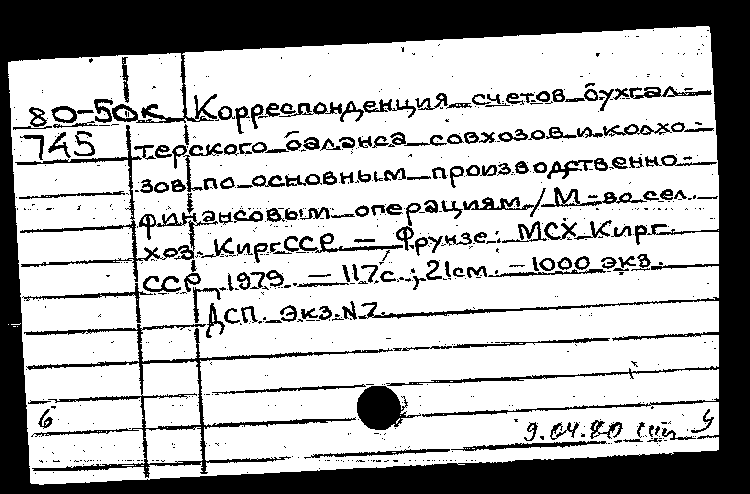 80-50к Корреспонденция счетов бухгал-
745 терского баланса совхозов и колхо-
зов по основным производственно-
финансовым операциям / М-во сел.
хоз. КиргССР. — Фрунзе: МСХ Кирг.
ССР, 1979. — 117с.; 21см. — 1000 экз.
ДСП. Экз. N7.
6
9.04.80 ч